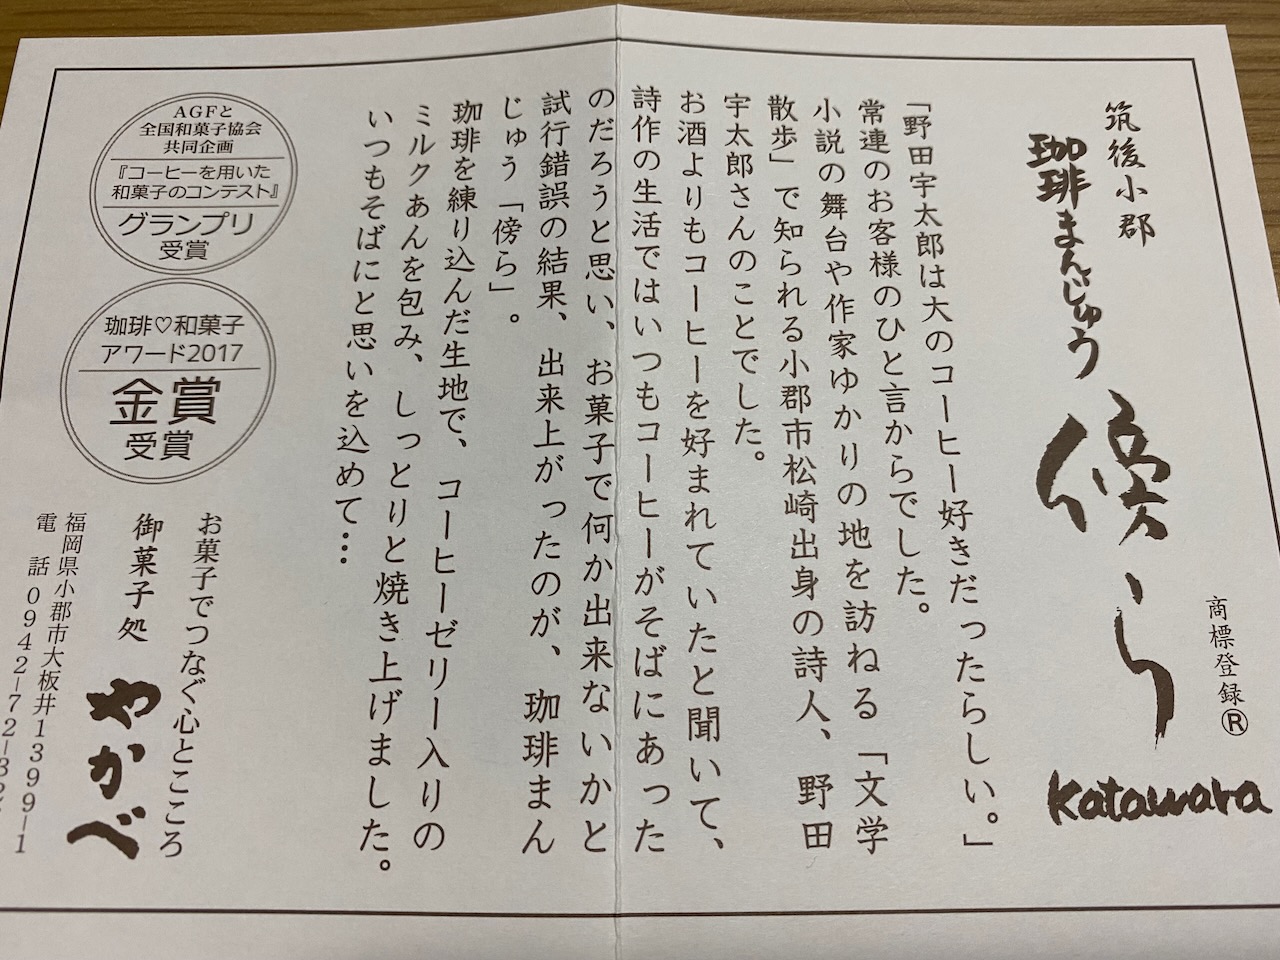 筑後小郡
珈琲まんじゅう
傍ら
商標登録®
katawara
「野田宇太郎は大のコーヒー好きだったらしい。」
常連のお客様のひと言からでした。
小説の舞台や作家ゆかりの地を訪ねる「文学
散歩」で知られる小郡市松崎出身の詩人、野田
宇太郎さんのことでした。
お酒よりもコーヒーを好まれていたと聞いて、
詩作の生活ではいつもコーヒーがそばにあった
のだろうと思い、お菓子で何か出来ないかと
試行錯誤の結果、出来上がったのが、珈琲まん
じゅう「傍ら」。
珈琲を練り込んだ生地で、コーヒーゼリー入りの
ミルクあんを包み、しっとりと焼き上げました。
いつもそばにと思いを込めて…
AGFと
全国和菓子協会
共同企画
『コーヒーを用いた
和菓子のコンテスト』
グランプリ
受賞
珈琲♡和菓子
アワード2017
金賞
受賞
お菓子でつなぐ心とこころ
御菓子処
やかべ
福岡県小郡市大板井1399-1
電話0942-72-